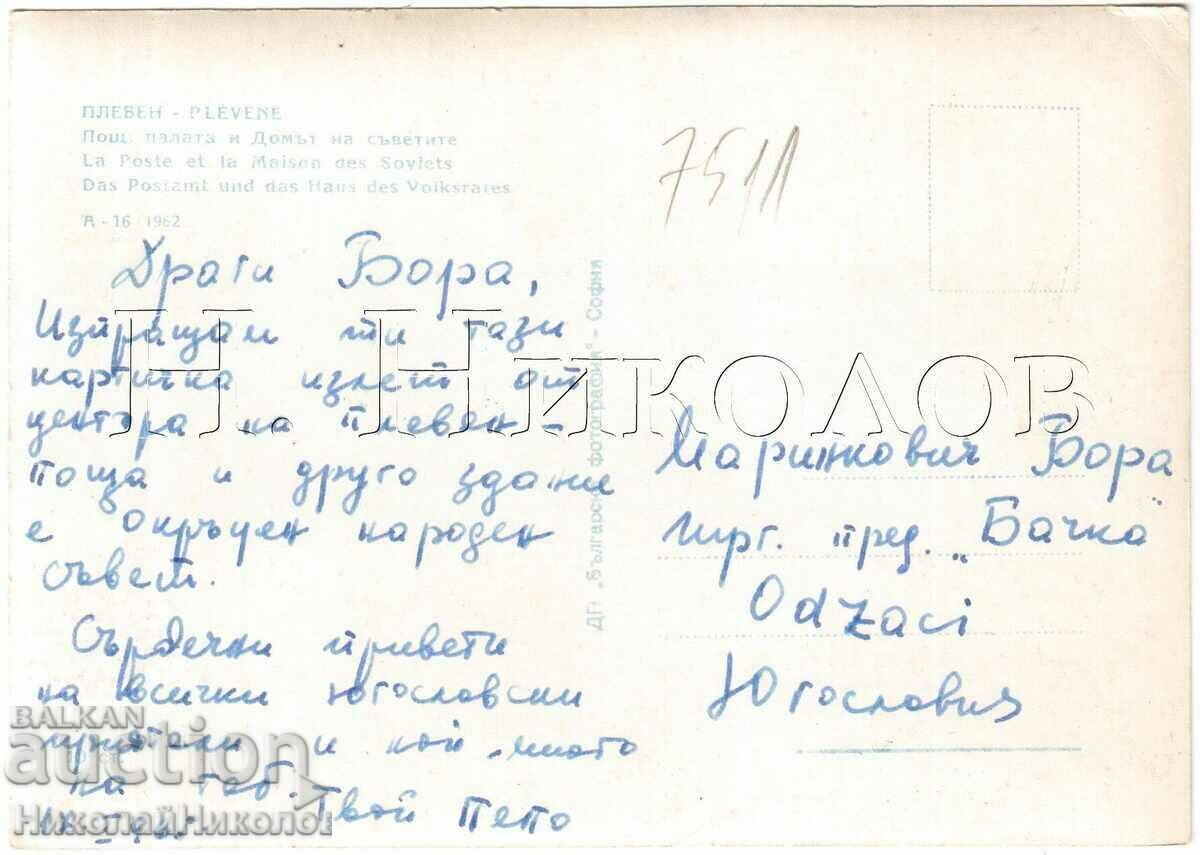 ПЛЕВЕН - PLÉVENE
Пощ. палата и Домът на съветите
La Poste et la Maison des Soviets
Das Postamt und das Haus des Volksrates
А - 16 1962
7511
Драги Бора,
Изпращам ти тази
картичка изглед от
центъра на Плевен -
поща и друго здание
е Окръжен народен
съвет.
Сърдечни привети
на всички югославски
приятели и най много
на теб.
Твой Пепо
ДП „Българска фотография" - София
Н. НИКОЛОВ
Маринкович Бора
търг. пред. „Бачка"
Odzaci
Югославия
BALKAN
auction
НиколайНиколов